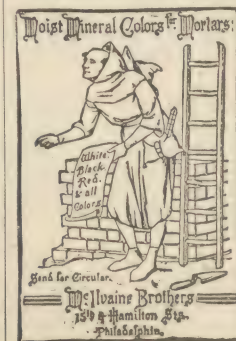 Moist Mineral Colors for Mortars:
White,
Black,
Red,
& all
Colors
Send for Circular.
McIlvaine Brothers
15th & Hamilton Sts.
Philadelphia.